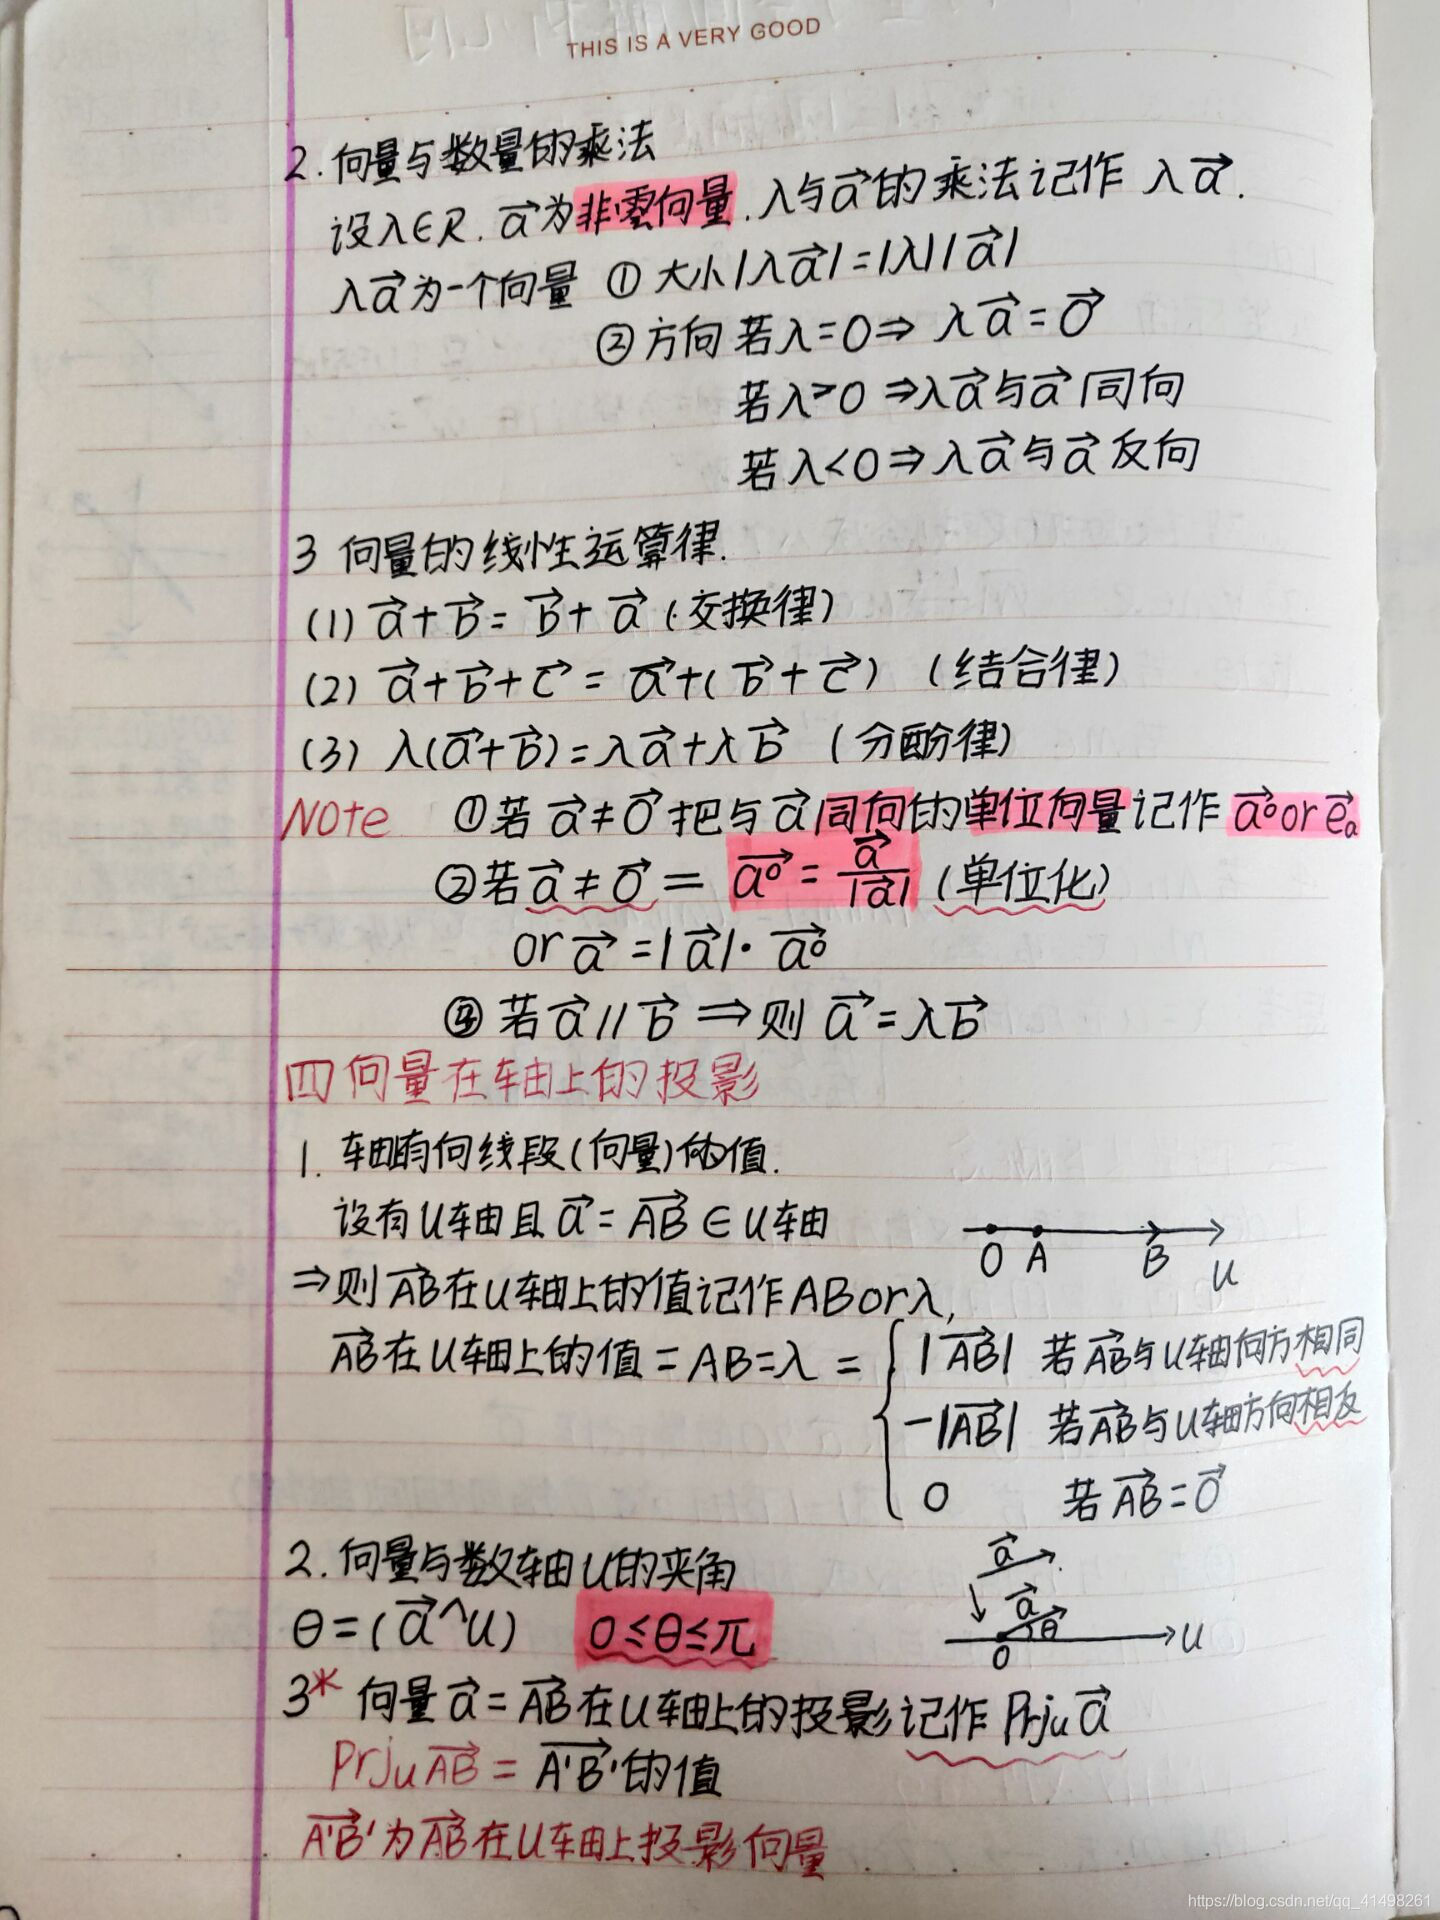 THIS IS A VERY GOOD
2.向量与数量的乘法
设λ∈R.a⃗为非零向量.λ与a⃗的乘法记作 λa⃗.
λa⃗为一个向量 ①大小|λa⃗|=|λ||a⃗|
②方向 若λ=0⇒ λa⃗=0⃗
若λ>0 ⇒λa⃗与a⃗同向
若λ<0⇒λa⃗与a⃗反向
3 向量的线性运算律.
(1) a⃗+b⃗=b⃗+a⃗ (交换律)
(2) a⃗+b⃗+c⃗ = a⃗+(b⃗+c⃗) (结合律)
(3) λ(a⃗+b⃗)=λa⃗+λb⃗ (分配律)
Note ①若a⃗≠0⃗ 把与a⃗同向的单位向量记作 a⃗⁰ or e⃗ₐ
②若a⃗≠0⃗ = a⃗⁰ = a⃗/|a⃗| (单位化)
or a⃗ =|a⃗|· a⃗⁰
③若a⃗//b⃗ ⇒则 a⃗=λb⃗
四 向量在轴上的投影
1. 轴有向线段(向量)的值.
设有u轴且a⃗=AB⃗∈u轴
O A B u
⇒则AB⃗在u轴上的值记作AB or λ,
AB⃗在u轴上的值=AB=λ = { |AB⃗| 若AB⃗与u轴向方相同
-|AB⃗| 若AB⃗与u轴方向相反
0 若AB⃗=0⃗
2.向量与数轴u的夹角
a⃗
θ=(a⃗^u) 0≤θ≤π
a⃗ θ O u
3* 向量a⃗=AB⃗在u轴上的投影记作Prjᵤa⃗
PrjᵤAB⃗ = A'B'⃗的值
A'B'⃗为AB⃗在u轴上投影向量
https://blog.csdn.net/qq_41498261